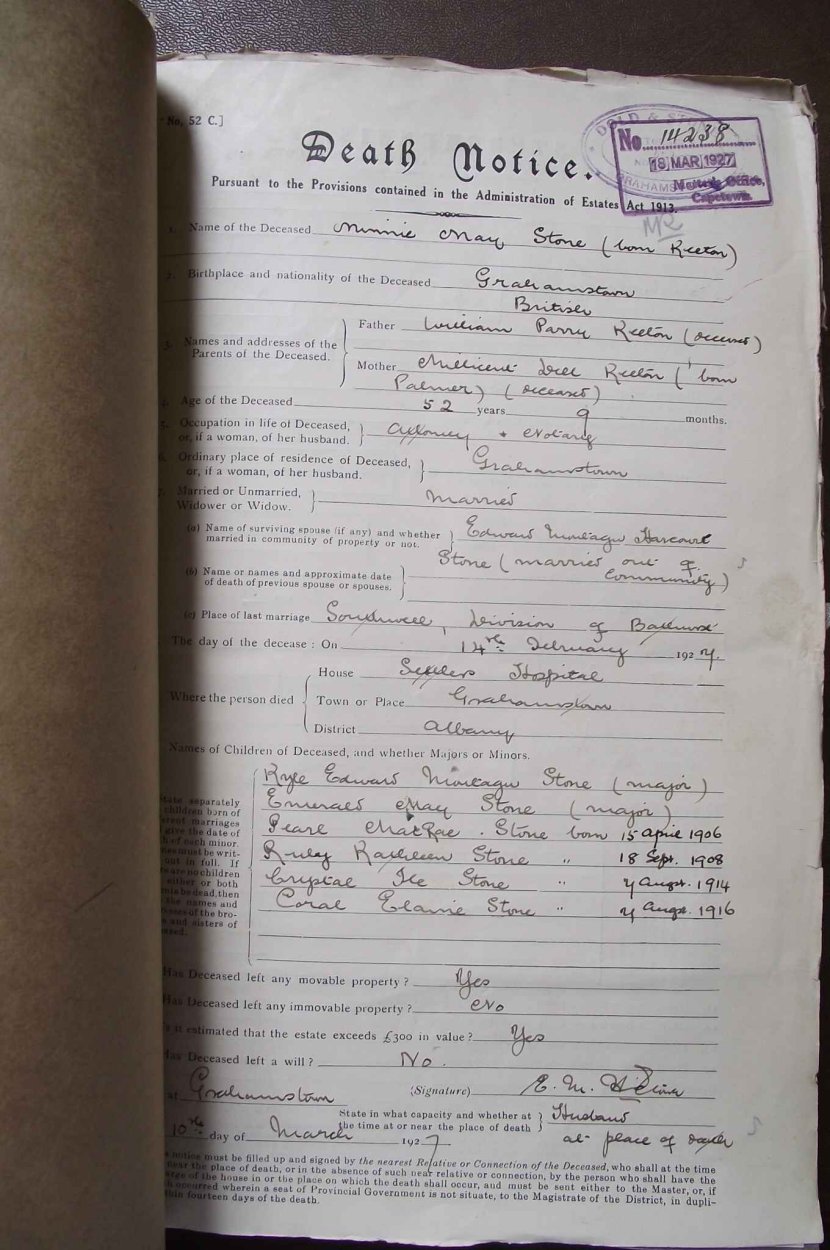 No. 52 C.]
DOLD & STONE
GRAHAMS
No. 14238
18 MAR 1927
Master's Office,
Capetown.
Death Notice.
Pursuant to the Provisions contained in the Administration of Estates Act 1913.
1. Name of the Deceased Minnie May Stone (born Keeton)
2. Birthplace and nationality of the Deceased Grahamstown
British
3. Names and addresses of the Parents of the Deceased.
Father William Parry Keeton (deceased)
Mother Millicent Dell Keeton (born
Palmer) (deceased)
4. Age of the Deceased 52 years 9 months.
5. Occupation in life of Deceased,
or, if a woman, of her husband. } Attorney & Notary
6. Ordinary place of residence of Deceased,
or, if a woman, of her husband. } Grahamstown
7. Married or Unmarried,
Widower or Widow. } Married
(a) Name of surviving spouse (if any) and whether
married in community of property or not. } Edward Montagu Harcourt
Stone (married out of
community)
(b) Name or names and approximate date
of death of previous spouse or spouses.
(c) Place of last marriage Southwell, Division of Bathurst
The day of the decease: On 14th February 1927.
Where the person died
House Settlers Hospital
Town or Place Grahamstown
District Albany
Names of Children of Deceased, and whether Majors or Minors.
Kyle Edward Montagu Stone (major)
Emerald May Stone (major)
Pearl MacRae Stone born 15 April 1906
Ruby Kathleen Stone " 18 Sept. 1908
Crystal Ile Stone " 7 Augst. 1914
Coral Elaine Stone " 7 Augst. 1916
state separately
children born of
marriages
give the date of
of each minor.
must be writ-
out in full. If
are no children
either or both
be dead, then
the names and
of the bro-
and sisters of
Has Deceased left any movable property? Yes
Has Deceased left any immovable property? No
Is it estimated that the estate exceeds £300 in value? Yes
Has Deceased left a will? No.
at Grahamstown (Signature) E. M. H Stone
10th day of March 1927
State in what capacity and whether at
the time at or near the place of death } Husband
at place of death
notice must be filled up and signed by the nearest Relative or Connection of the Deceased, who shall at the time
near the place of death, or in the absence of such near relative or connection, by the person who shall have the
of the house in or the place on which the death shall occur, and must be sent either to the Master, or, if
occurred wherein a seat of Provincial Government is not situate, to the Magistrate of the District, in dupli-
fourteen days of the death.